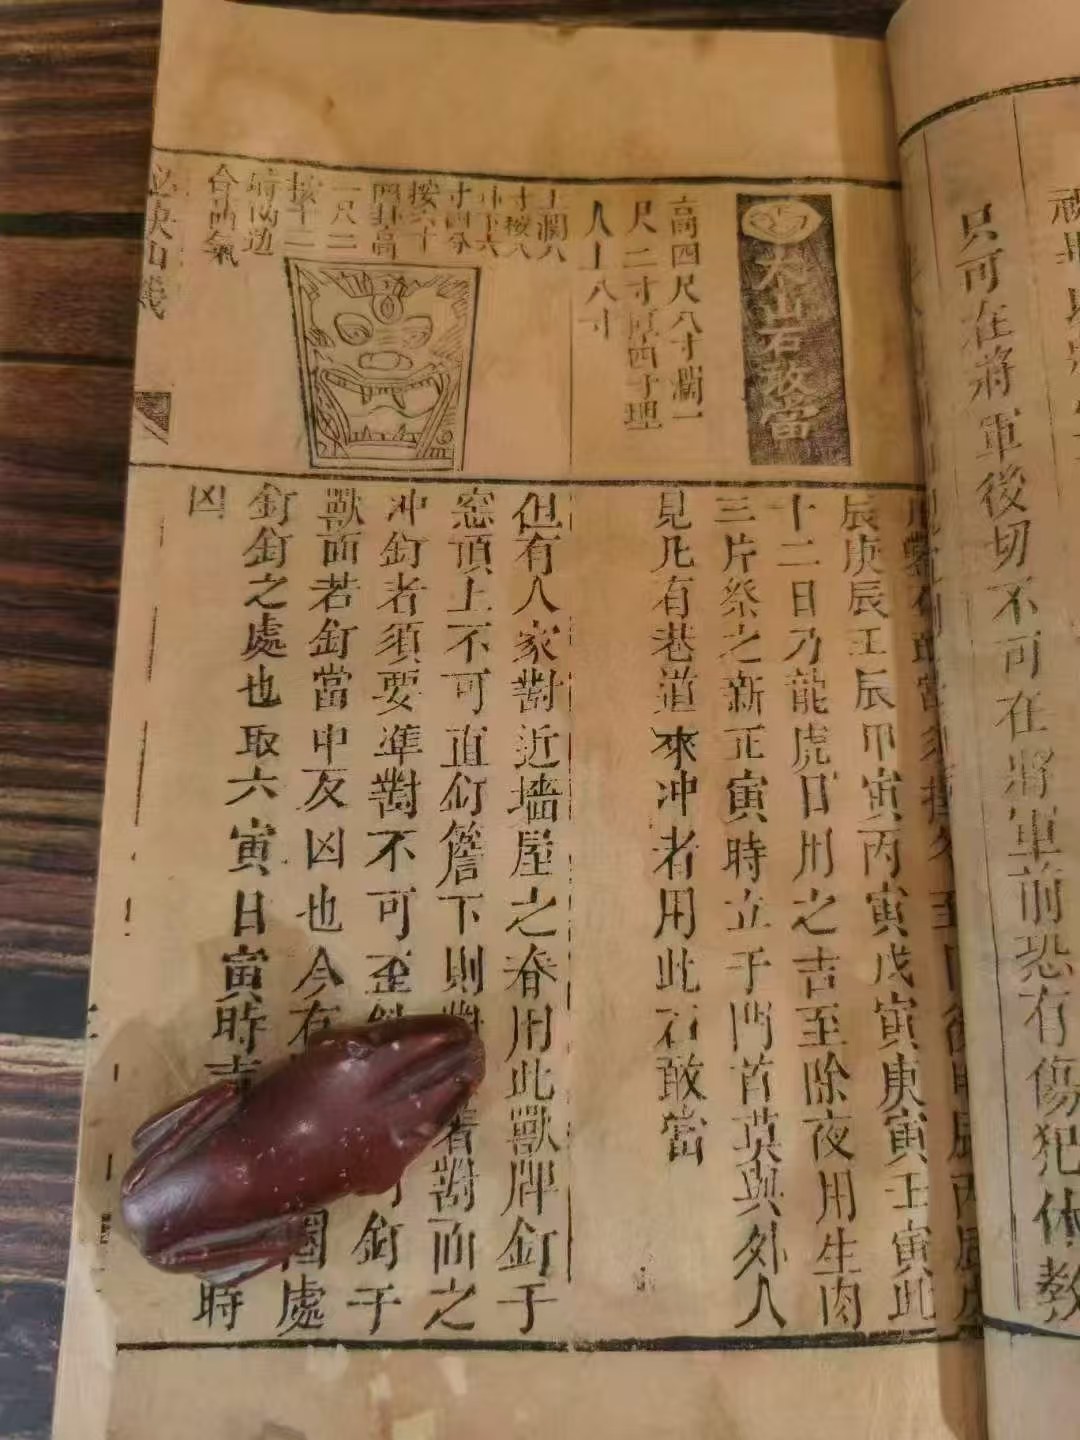 只可在將軍後切不可在將軍前恐有傷犯休教
石敢當
高四尺八寸濶一
尺二寸厚四寸理
入土八寸
上濶八
寸按八
卦下六
寸四分
按六十
四卦高
一尺二
按十二
時兩边
合節氣
凡鑿石敢當須擇冬至日後甲辰丙辰戊
辰庚辰壬辰甲寅丙寅戊寅庚寅壬寅此
十二日乃龍虎日用之吉至除夜用生肉
三片祭之新正寅時立于門首莫與外人
見凡有巷道來冲者用此石敢當
但有人家對近墻屋之脊用此獸牌釘于
窓頂上不可直釘簷下則對着對面之
冲釘者須要準對不可歪斜可釘于
獸面若釘當中反凶也今有圈處
釘釘之處也取六寅日寅時吉時
凶